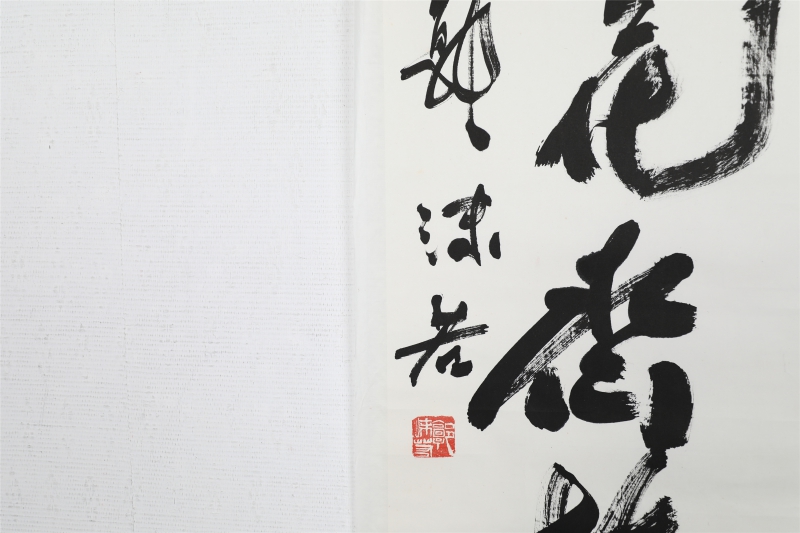 花香
郭沫若
郭沫若